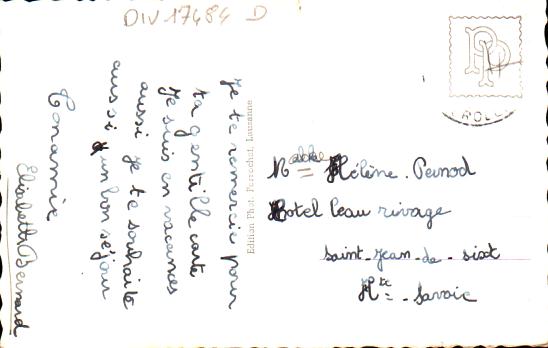 DIV 17484 D
Je te remercie pour
ta gentille carte
Je suis en vacances
aussi je te souhaite
aussi un bon séjour
Ton amie
Elisabeth Bernard
Edition Phot. Perrochet, Lausanne
Hélène Pernod
Hotel beau rivage
saint-jean-de-sixt
Hte-Savoie